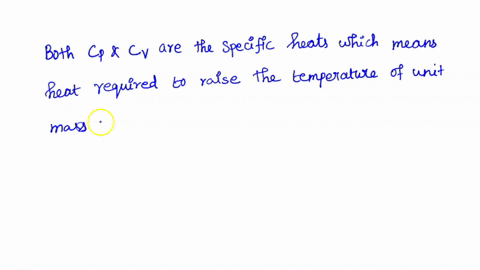 Both Cp & Cv are the specific heats which means
heat required to raise the temperature of unit
mass